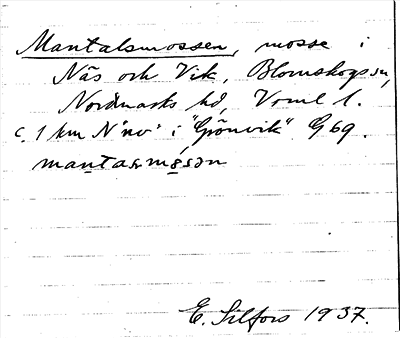 Mantalsmossen, mosse i
Näs och Vik, Blomskogs sn,
Nordmarks hd, Vrml l.
c. 1 km N'nv' i "Grönvik" G69.
E. Silfors 1937.